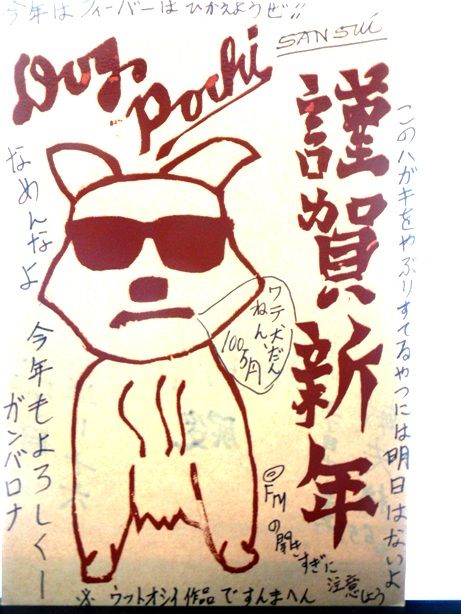 今年はフィーバーはひかえようぜ!!
SANSUI
Dog
Pochi
謹賀新年
このハガキをやぶりすてるやつには明日はないよ
なめんなよ 今年もよろしくー
ガンバロナ
ワテ犬だん
ねん、
100万円
◎FMの聞きすぎに注意しよう
※ ウットオシイ作品ですんまへん